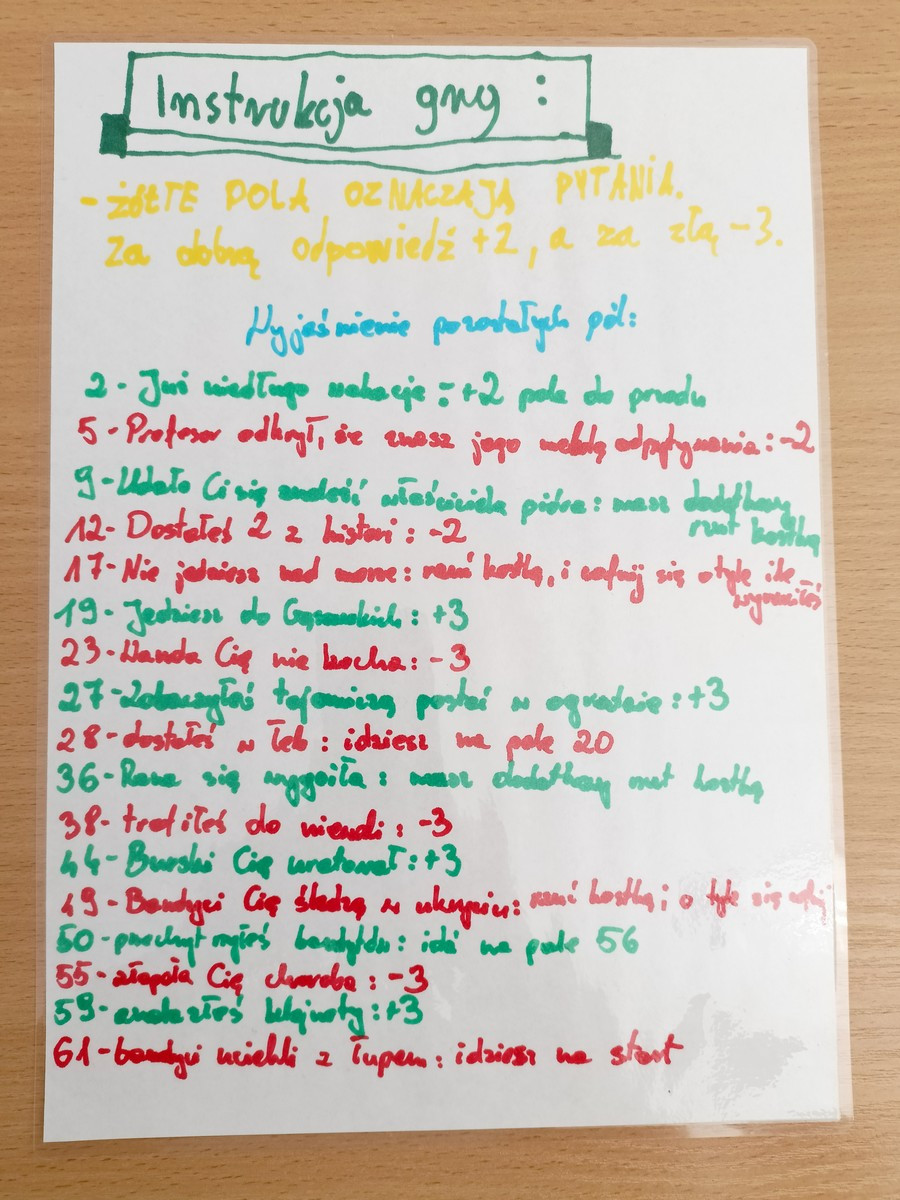 Instrukcja gry :
- ŻÓŁTE POLA OZNACZAJĄ PYTANIA.
Za dobrą odpowiedź +2, a za złą -3.
Wyjaśnienie pozostałych pól:
2 - Już niedługo wakacje : +2 pola do przodu
5 - Profesor odkrył, że znasz jego metodę odpytywania : -2
9 - Udało Ci się znaleźć właściciela pióra : masz dodatkowy
rzut kostką
12 - Dostałeś 2 z histori : -2
17 - Nie jedziesz nad morze : rzuć kostką, i cofnij się o tyle ile
wyrzuciłeś
19 - Jedziesz do Gąsowskich : +3
23 - Wanda Cię nie kocha : -3
27 - Zobaczyłeś tajemniczą postać w ogrodzie : +3
28 - dostałeś w łeb : idziesz na pole 20
36 - Rana się wygoiła : masz dodatkowy rzut kostką
38 - trafiłeś do niewoli : -3
44 - Burski Cię uratował : +3
49 - Bandyci Cię śledzą w ukryciu : rzuć kostką i o tyle się
50 - przechytrzyłeś bandytów : idź na pole 56
55 - złapała Cię choroba : -3
59 - znalazłeś klejnoty : +3
61 - bandyci uciekli z łupem : idziesz na start